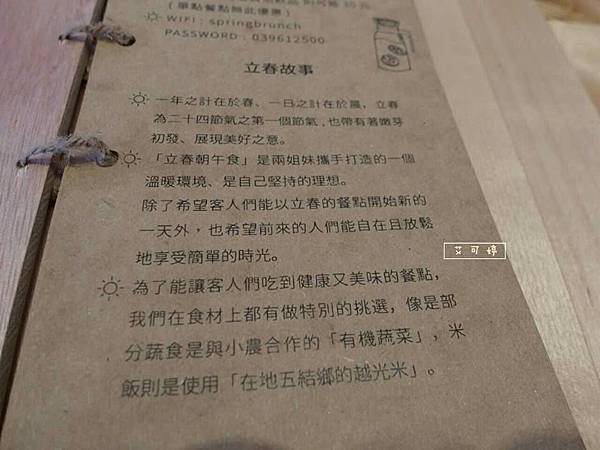 (單點餐點無此優惠)
WIFI : springbrunch
PASSWORD : 039612500
立春故事
一年之計在於春、一日之計在於晨，立春
為二十四節氣之第一個節氣,也帶有著嫩芽
初發、展現美好之意。
「立春朝午食」是兩姐妹攜手打造的一個
溫暖環境、是自己堅持的理想。
除了希望客人們能以立春的餐點開始新的
一天外，也希望前來的人們能自在且放鬆
地享受簡單的時光。
艾可婷
為了能讓客人們吃到健康又美味的餐點，
我們在食材上都有做特別的挑選，像是部
分蔬食是與小農合作的「有機蔬菜」，米
飯則是使用「在地五結鄉的越光米」。